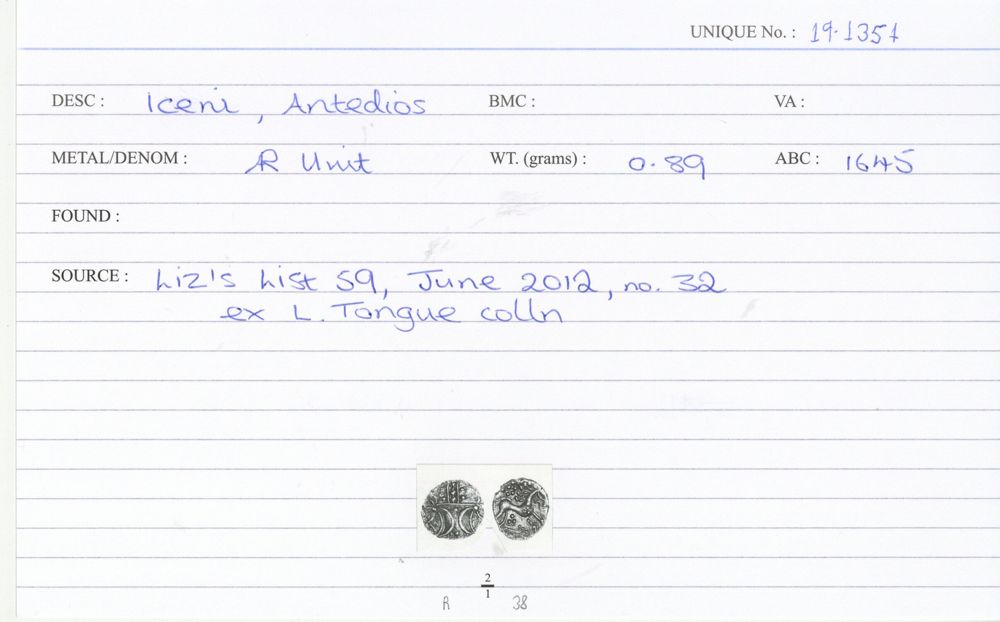 UNIQUE No. : 19.1351
DESC : Iceni, Antedios BMC : VA :
METAL/DENOM : ÆR Unit WT. (grams) : 0.89 ABC : 1645
FOUND :
SOURCE : Liz's List 59, June 2012, no. 32
ex L. Tongue colln
2
1
R 38